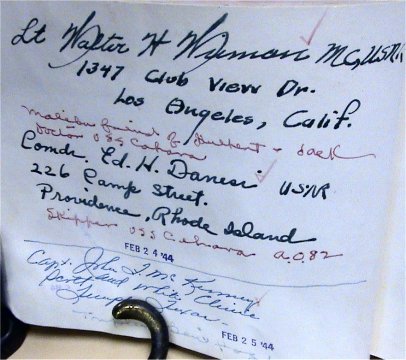 Lt Walter H Wymon MC, USNR
1347 Club View Dr.
Los Angeles, Calif.
Malibu friend of Hulbert + Jack
Doctor USS Cahava
Comdr. Ed. H. Danesi USNR
226 Camp Street.
Providence, Rhode Island
Skipper USS Cahava a.o. 82
FEB 24 '44
Capt. John J. Mc Kinney
Portland White Clinic
FEB 25 '44